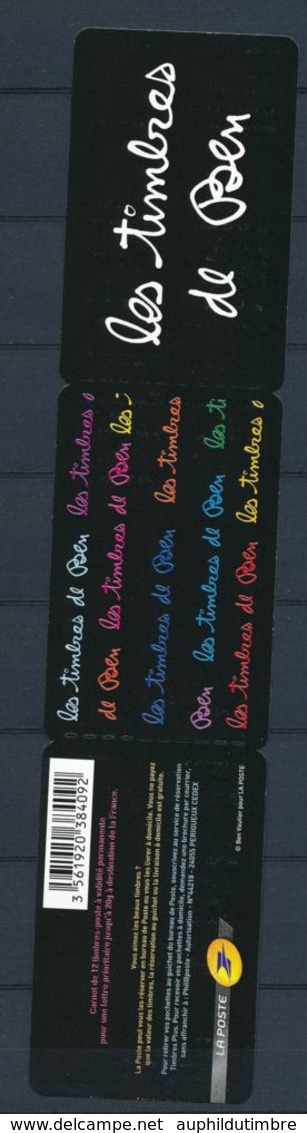 les timbres
de Ben
les timbres de Ben les timbres d
de Ben les timbres de Ben les ti
les timbres de Ben les timbres
Ben les timbres de Ben les ti
les timbres de Ben les timbres d
3 561920 384092
Carnet de 12 timbres-poste à validité permanente
pour une lettre prioritaire jusqu'à 20g à destination de la France.
Vous aimez les beaux timbres ?
La Poste peut vous les réserver en bureau de Poste ou vous les livrer à domicile. Vous ne payez
que la valeur des timbres, la réservation au guichet ou la livraison à domicile est gratuite.
Pour retirer vos pochettes au guichet du bureau de Poste, souscrivez au service de réservation
Timbres Plus. Pour recevoir vos pochettes à domicile, demandez une brochure par courrier,
sans affranchir à : Phil@poste - Autorisation - N°44218 - 24055 PERIGUEUX CEDEX
LA POSTE
© Ben Vautier pour LA POSTE
www.delcampe.net auphildutimbre